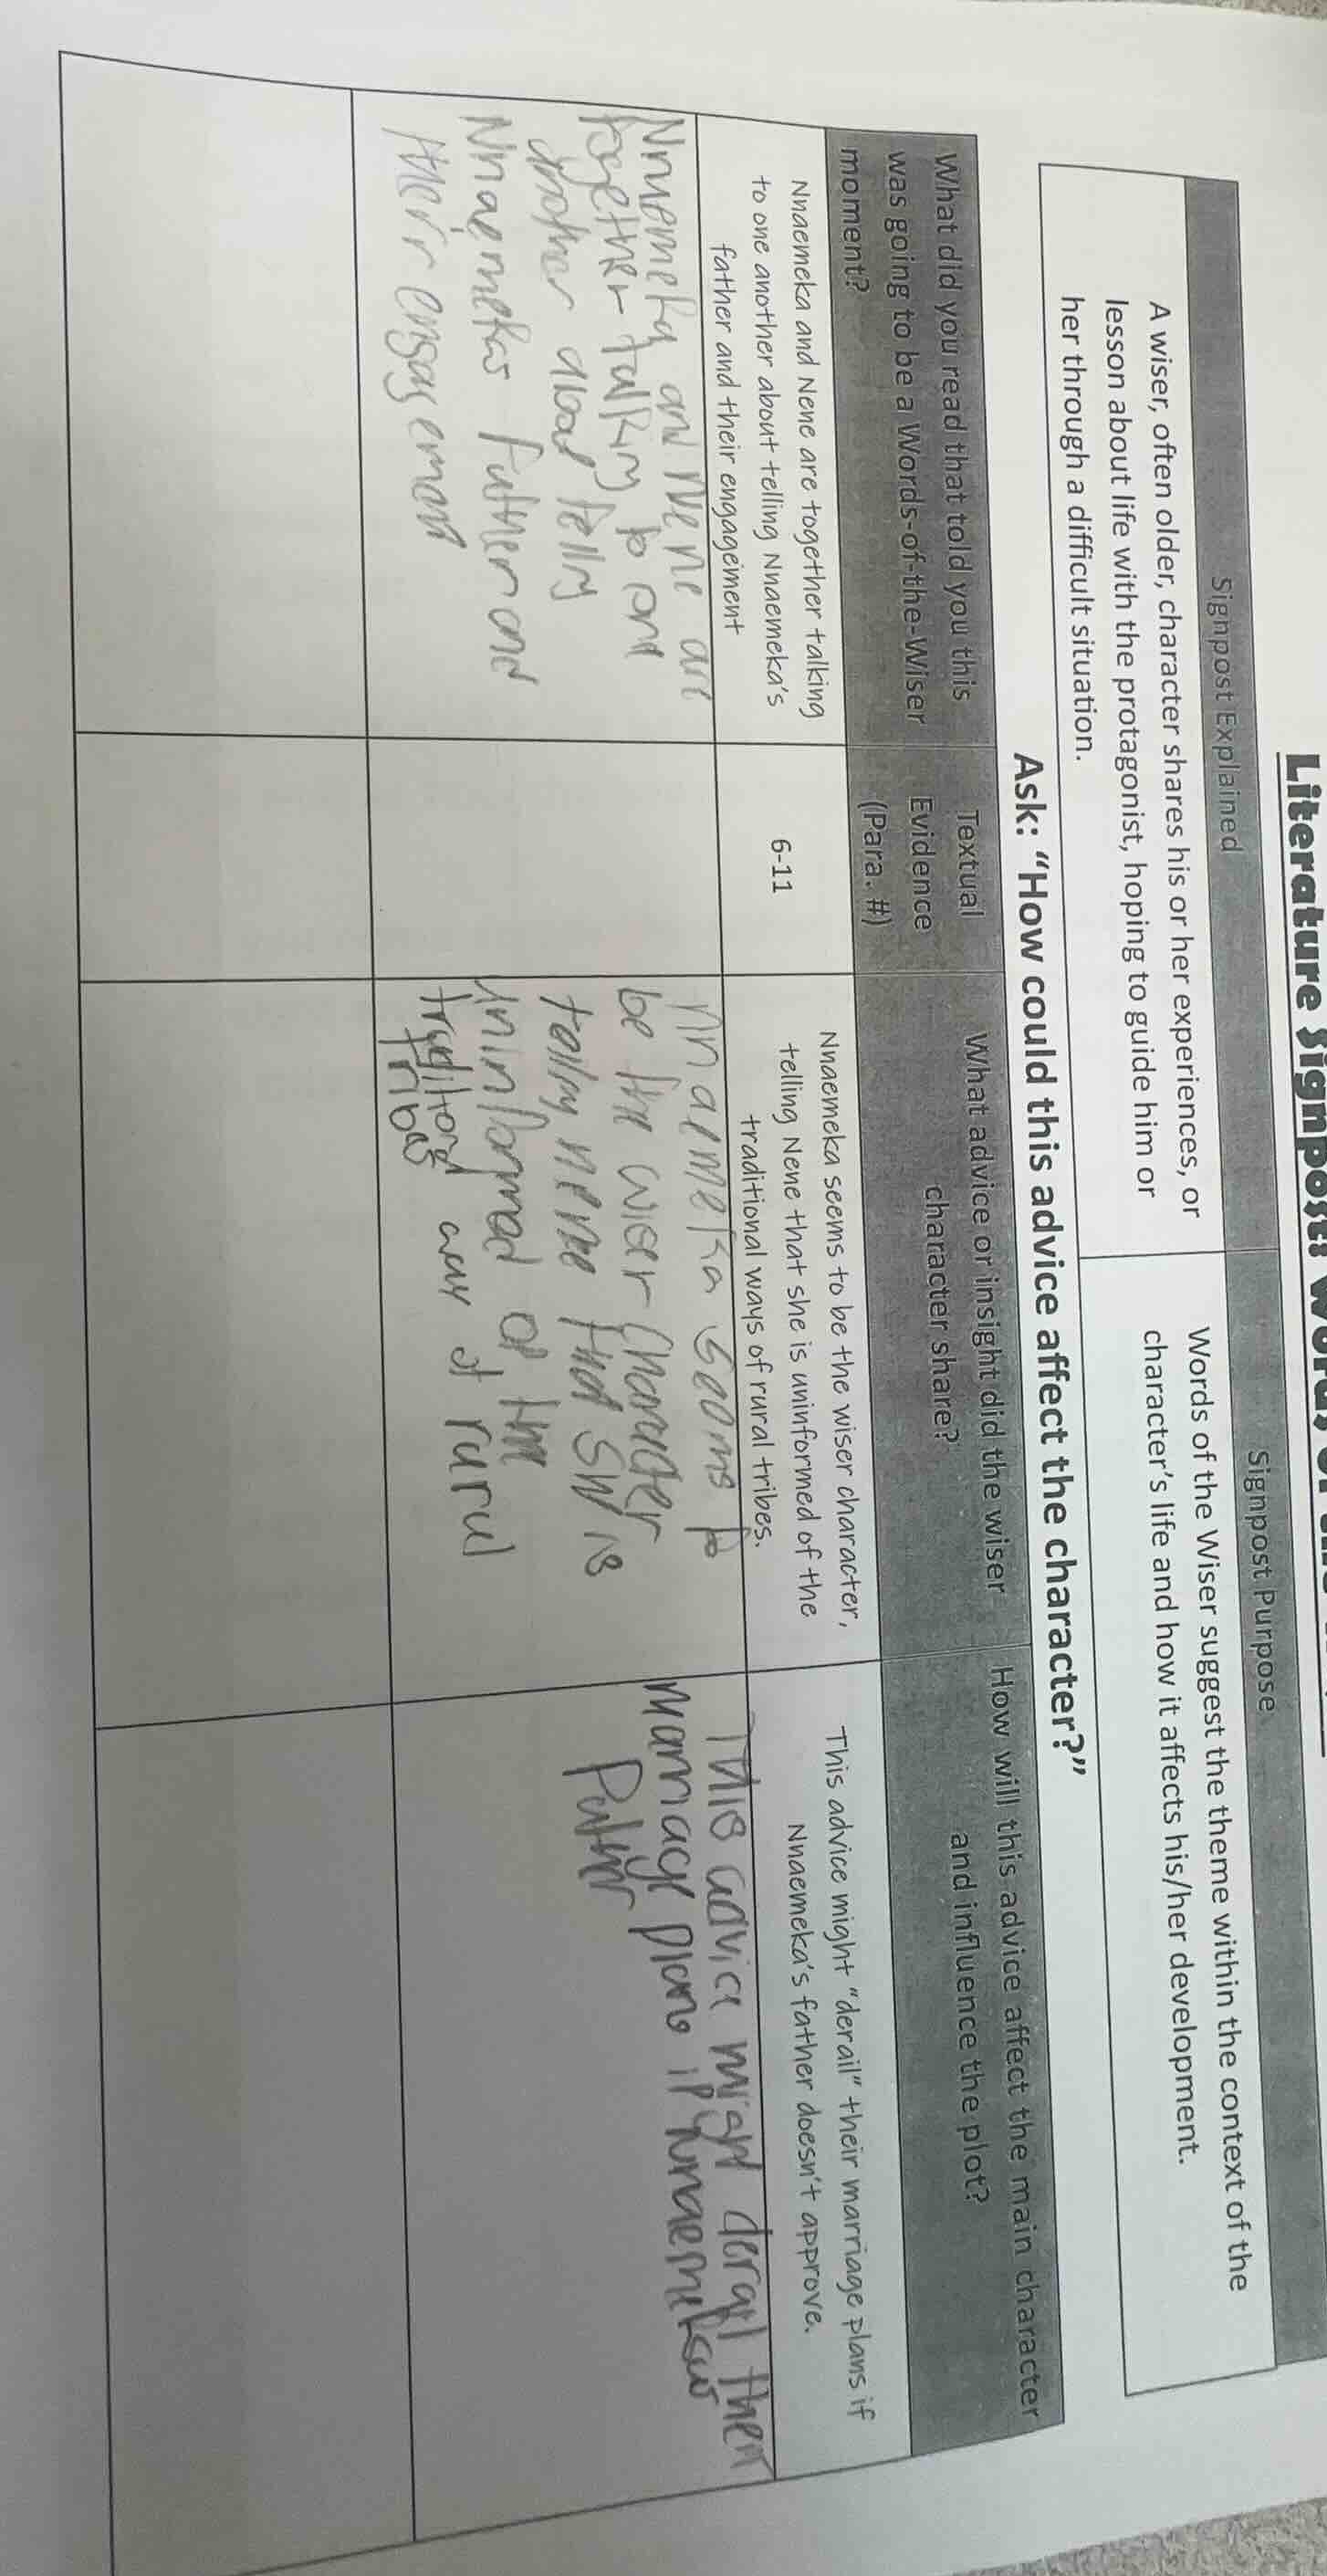 Literature Signpost: Words of the
Signpost Explained
Signpost Purpose
A wiser, often older, character shares his or her experiences, or
lesson about life with the protagonist, hoping to guide him or
her through a difficult situation.
Words of the Wiser suggest the theme within the context of the
character's life and how it affects his/her development.
Ask: "How could this advice affect the character?"
What did you read that told you this
was going to be a Words-of-the-Wiser
moment?
Textual
Evidence
(Para. #)
What advice or insight did the wiser
character share?
How will this advice affect the main character
and influence the plot?
Nnaemeka and Nene are together talking
to one another about telling Nnaemeka's
father and their engagement
6-11
Nnaemeka seems to be the wiser character,
telling Nene that she is uninformed of the
traditional ways of rural tribes.
This advice might "derail" their marriage plans if
Nnaemeka's father doesn't approve.
Nnuemeka and Nene are
together talking to one
another about telling
Nnaemekas father and
their engagement
nnaemeka seems to
be the wiser character
telling nene that she is
uninformed of the
traditional way of rural
tribes
This advice might derail their
marriage plans if nnaemekas